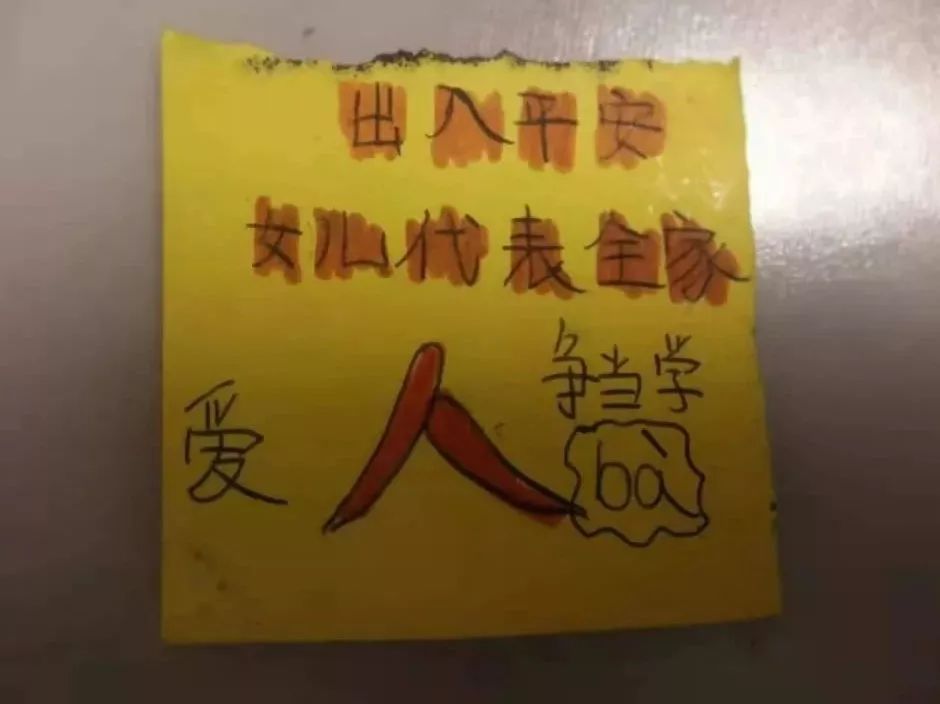 出入平安
女儿代表全家
爱人
争当学
bà